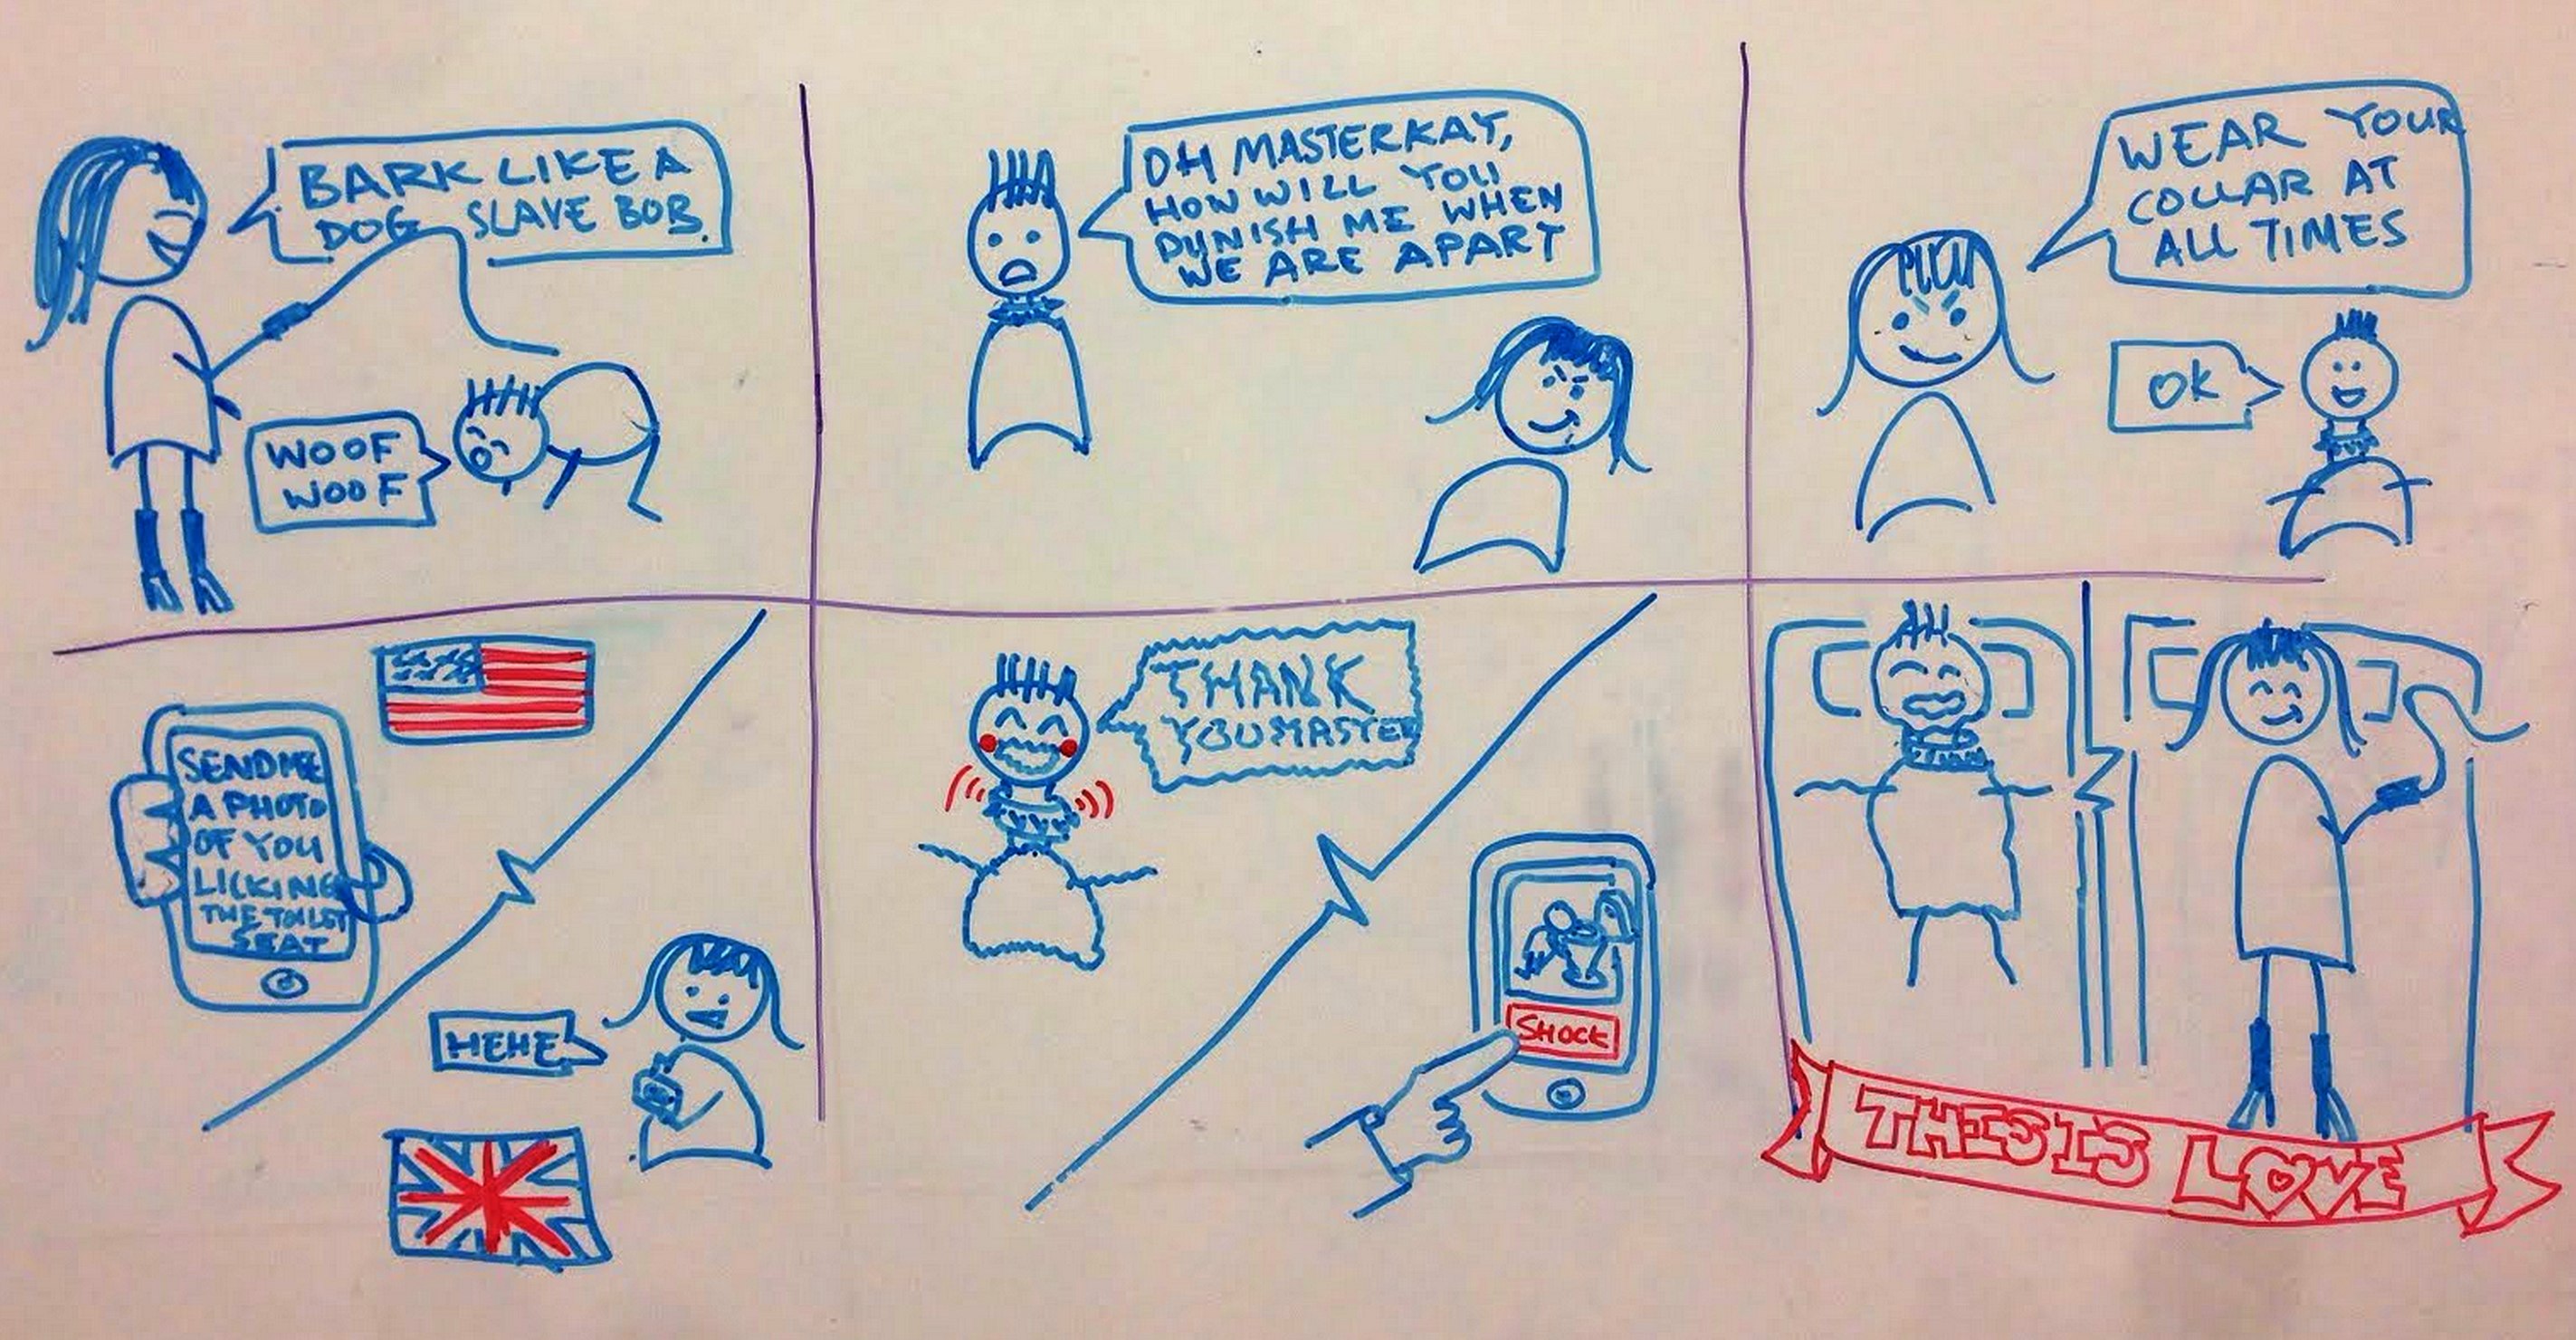 BARK LIKE A
DOG SLAVE BOB.
WOOF
WOOF
OH MASTERKAY,
HOW WILL YOU
PUNISH ME WHEN
WE ARE APART
WEAR YOUR
COLLAR AT
ALL TIMES
OK
SEND ME
A PHOTO
OF YOU
LICKING
THE TOILET
SEAT
HEHE
THANK
YOU MASTER
SHOCK
THIS IS LOVE